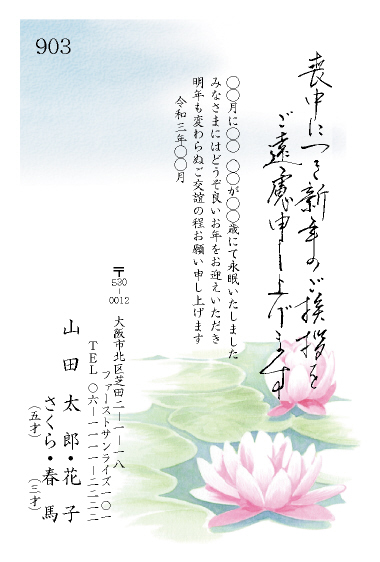 903
喪中につき新年のご挨拶を
ご遠慮申し上げます
〇〇月に〇〇 〇〇が〇〇歳にて永眠いたしました
みなさまにはどうぞ良いお年をお迎えいただき
明年も変わらぬご交誼の程お願い申し上げます
令和三年〇〇月
〒530-0012
大阪市北区芝田二－一－一八
ファーストサンライズ一〇一
TEL 〇六－一一一一－二二二二
山田太郎・花子
さくら・春馬
（五才）（三才）